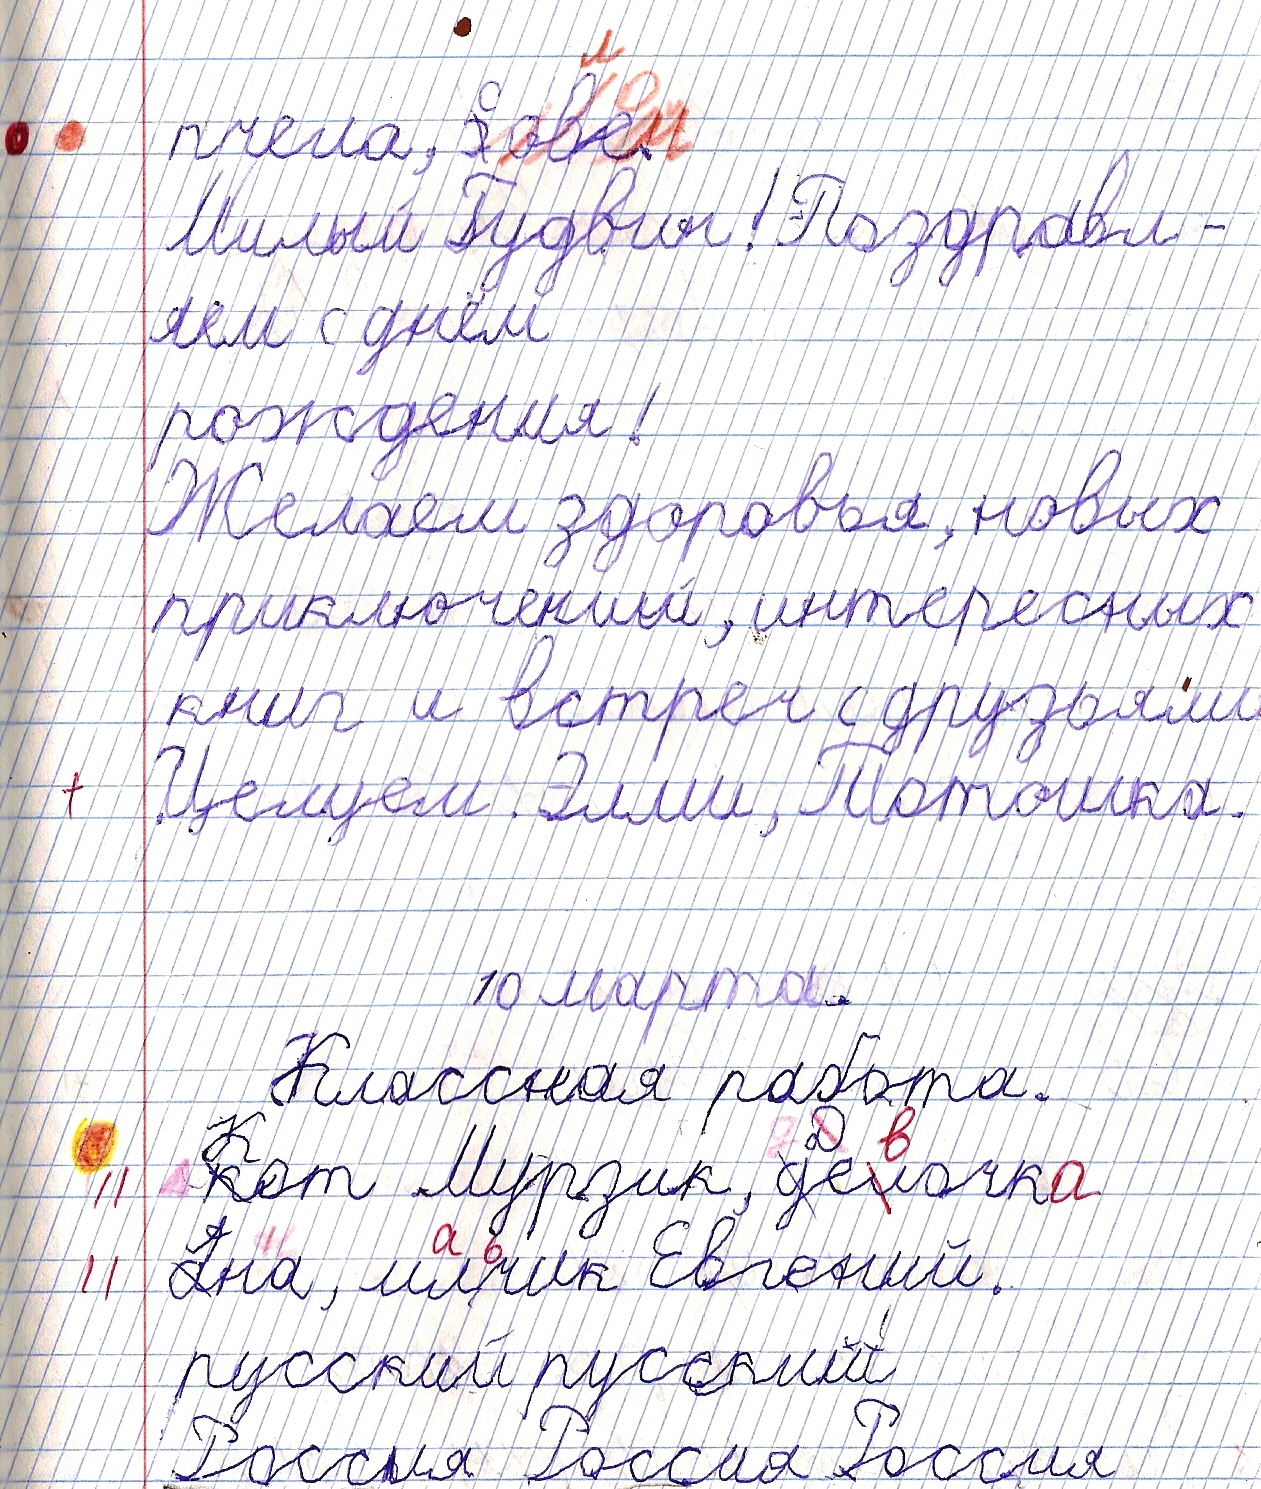 пчела,
Милый Гудвин! Поздравл-
яем с днём
рождения!
Желаем здоровья, новых
приключений, интересных
книг и встреч с друзьями
Целуем. Элли, Тотошка.
10 марта.
Классная работа.
Кот Мурзик, Девочка
Анна, мальчик Евгений.
русский русский
Россия Россия Россия